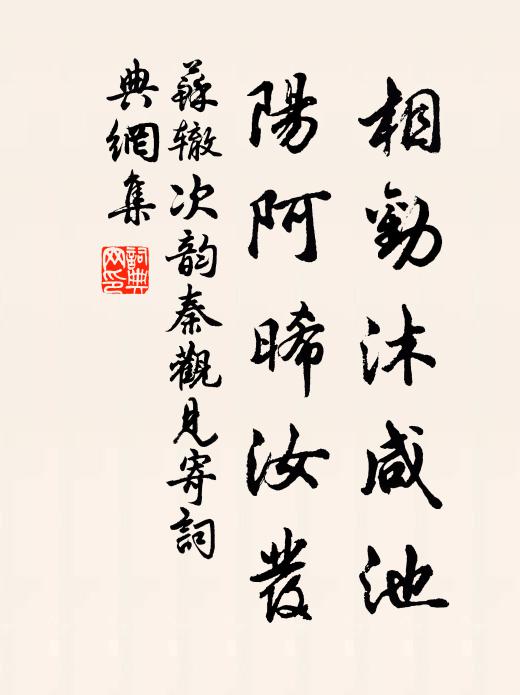 相勸沐咸池
陽阿晞汝發
蘇辙次韵秦觀見寄詞
典網集
詞典網印